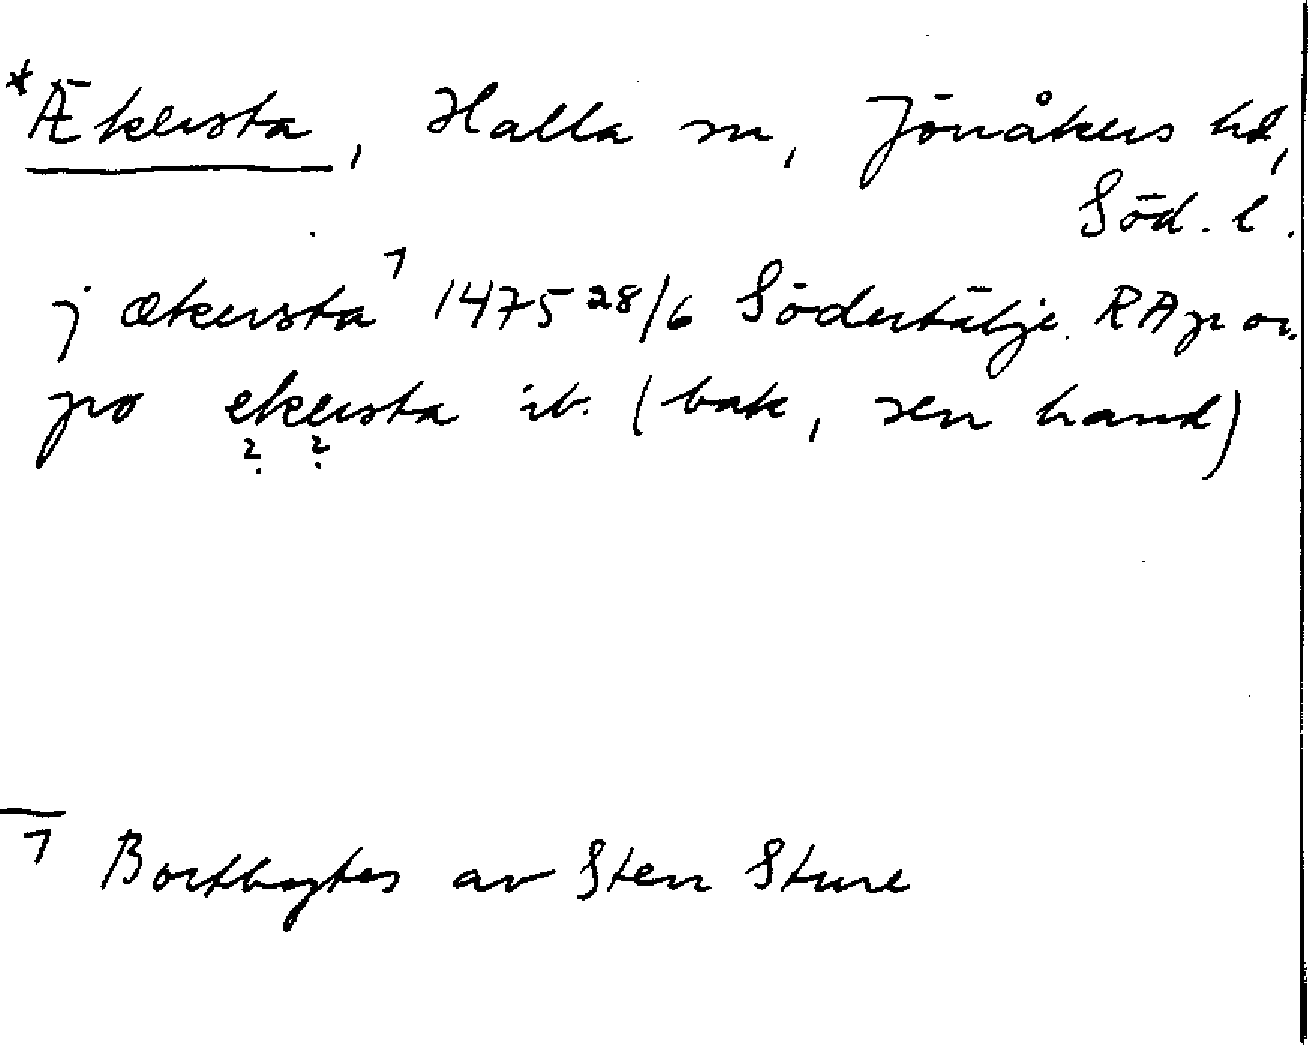 *Ækersta, Halla sn, Jönåkers hd,
Söd. l.
j ækersta 1) 1475 28/6 Södertälje. RAp or.
po ekersta ib. (bak, sen hand)
? ?
1 Bortbytes av Sten Sture